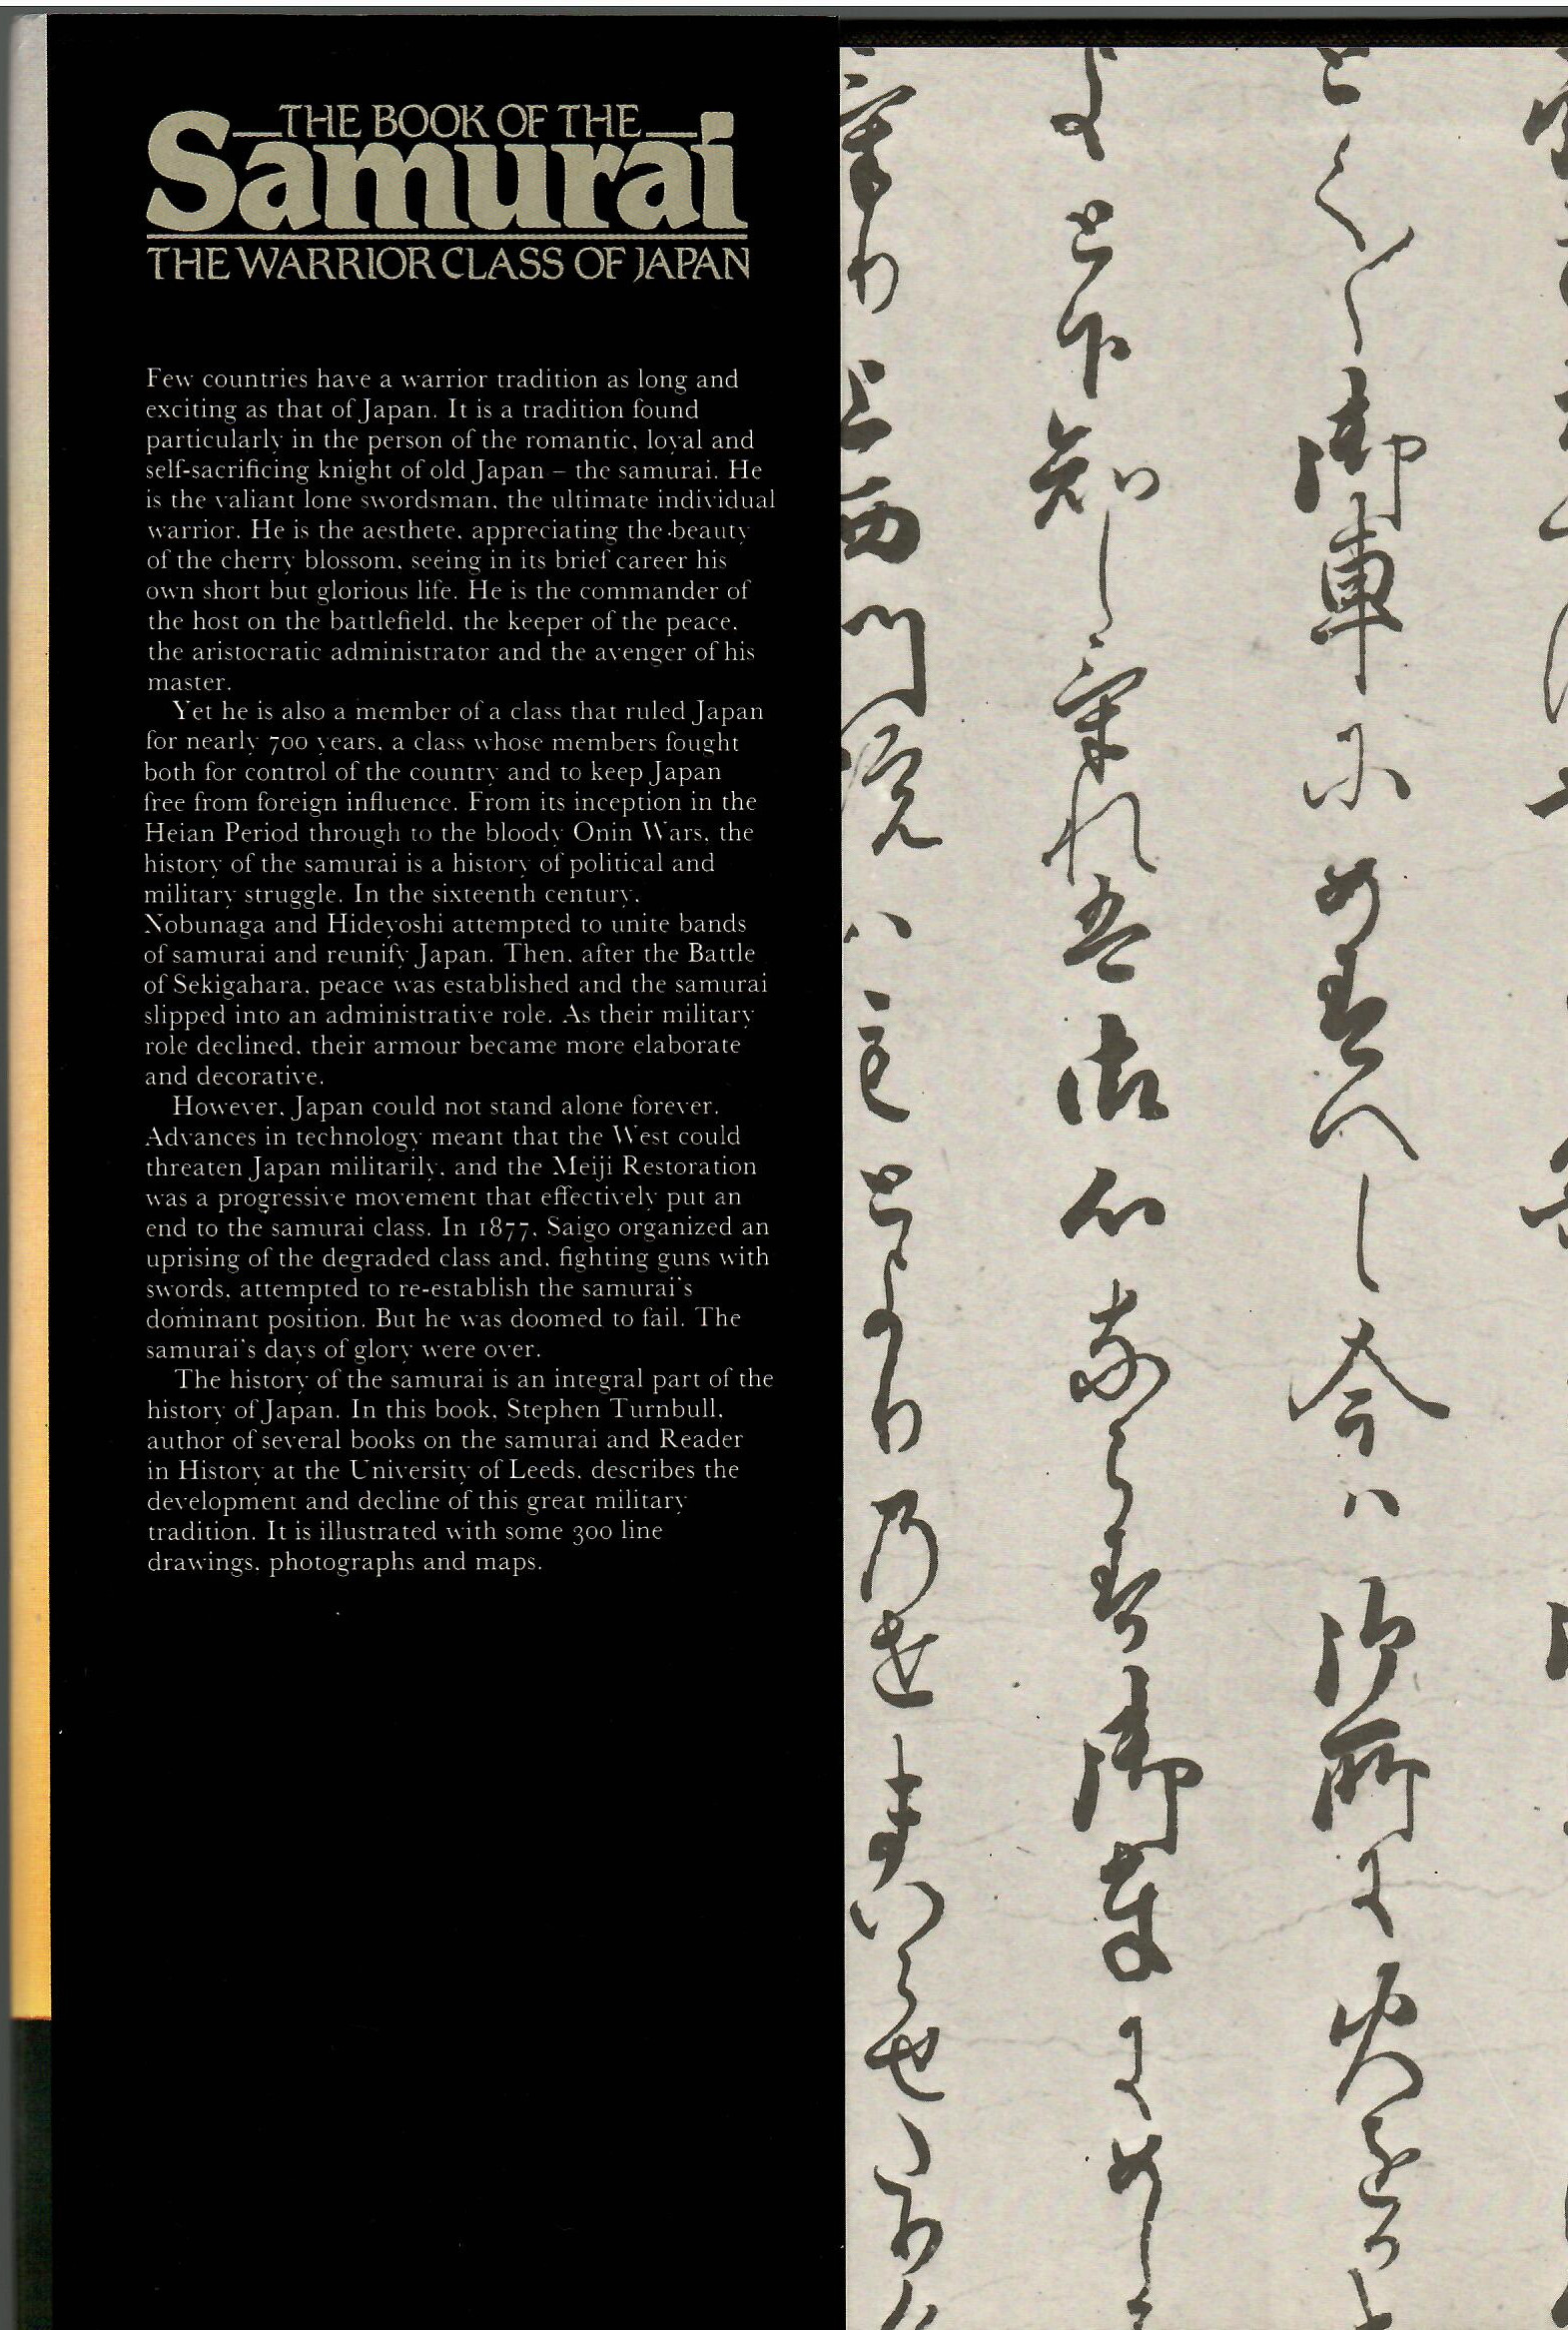 THE BOOK OF THE
Samurai
THE WARRIOR CLASS OF JAPAN
Few countries have a warrior tradition as long and
exciting as that of Japan. It is a tradition found
particularly in the person of the romantic, loyal and
self-sacrificing knight of old Japan – the samurai. He
is the valiant lone swordsman, the ultimate individual
warrior. He is the aesthete, appreciating the beauty
of the cherry blossom, seeing in its brief career his
own short but glorious life. He is the commander of
the host on the battlefield, the keeper of the peace,
the aristocratic administrator and the avenger of his
master.
Yet he is also a member of a class that ruled Japan
for nearly 700 years, a class whose members fought
both for control of the country and to keep Japan
free from foreign influence. From its inception in the
Heian Period through to the bloody Onin Wars, the
history of the samurai is a history of political and
military struggle. In the sixteenth century,
Nobunaga and Hideyoshi attempted to unite bands
of samurai and reunify Japan. Then, after the Battle
of Sekigahara, peace was established and the samurai
slipped into an administrative role. As their military
role declined, their armour became more elaborate
and decorative.
However, Japan could not stand alone forever.
Advances in technology meant that the West could
threaten Japan militarily, and the Meiji Restoration
was a progressive movement that effectively put an
end to the samurai class. In 1877, Saigo organized an
uprising of the degraded class and, fighting guns with
swords, attempted to re-establish the samurai's
dominant position. But he was doomed to fail. The
samurai's days of glory were over.
The history of the samurai is an integral part of the
history of Japan. In this book, Stephen Turnbull,
author of several books on the samurai and Reader
in History at the University of Leeds, describes the
development and decline of this great military
tradition. It is illustrated with some 300 line
drawings, photographs and maps.
御車にめさるへし今ハ御所に火をか
と下知し御心ならす御車にめし
上西門院ハもとよりのせまいらせたり